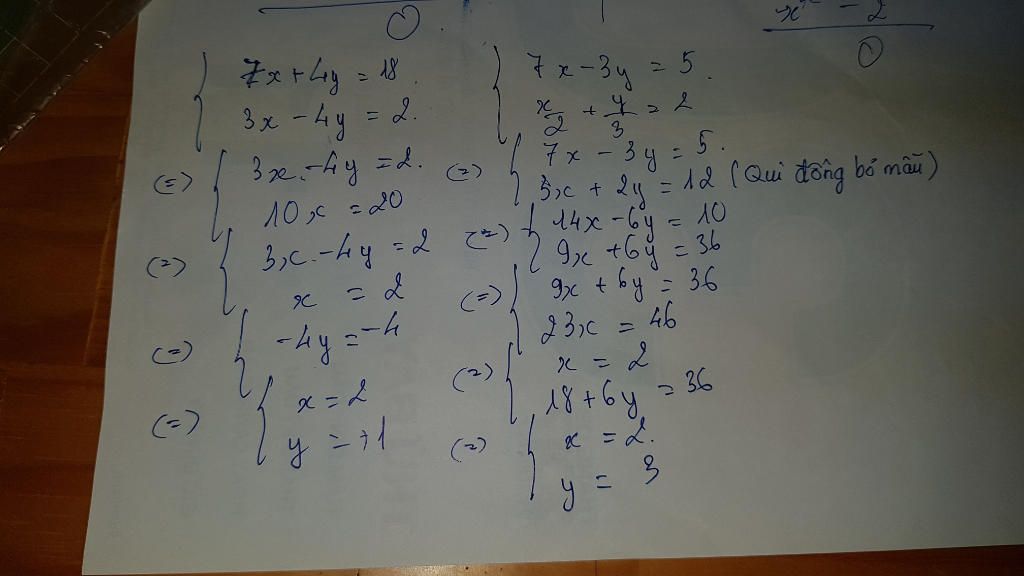 x² - 2
7x + 4y = 18.
3x - 4y = 2.
(=) 3x - 4y = 2.
10x = 20
(=) 3x - 4y = 2
x = 2
(=) -4y = -4
(=) x = 2
y = +1
7x - 3y = 5.
x/2 + y/3 = 2
(=) 7x - 3y = 5.
3x + 2y = 12 (Qui đồng bỏ mẫu)
(=) 14x - 6y = 10
9x + 6y = 36
(=) 9x + 6y = 36
23x = 46
(=) x = 2
18 + 6y = 36
(=) x = 2.
y = 3